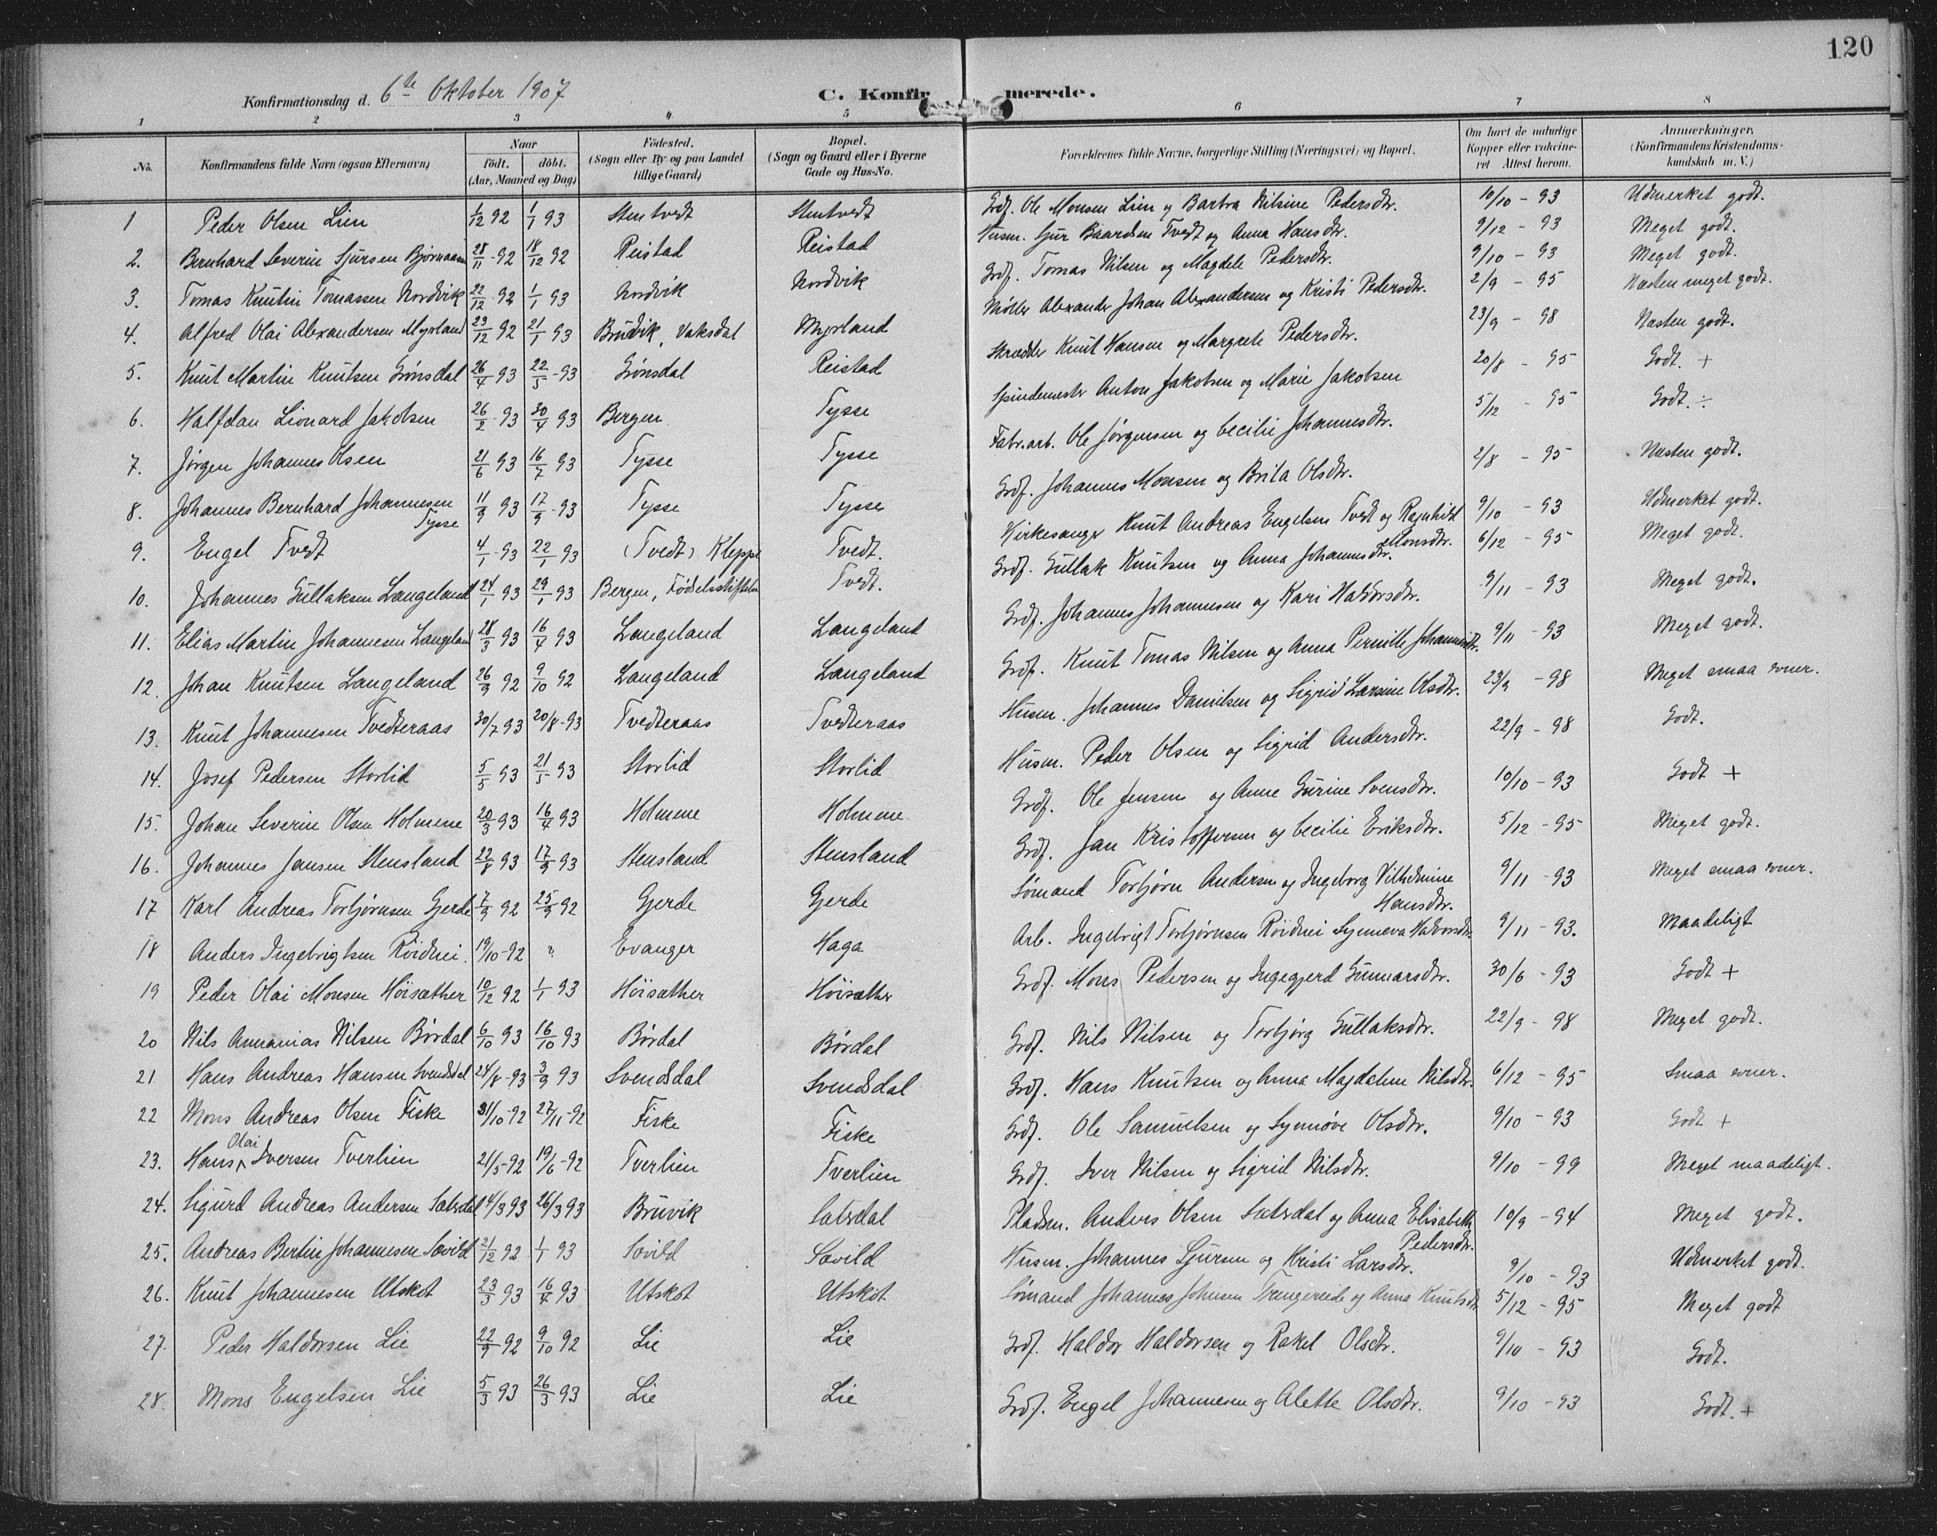 120
Konfirmationsdag d. 6te Oktober 1907
C. Konfirmerede.
1 2 3 4 5 6 7 8
No. Konfirmandens fulde Navn (ogsaa Efternavn) Naar født. døbt. (Aar, Maaned og Dag) Fødested. (Sogn eller By og paa Landet tillige Gaard) Bopæl. (Sogn og Gaard eller i Byerne Gade og Hus-No. Forældrenes fulde Navne, borgerlige Stilling (Næringsvei) og Bopæl. Om havt de naturlige Kopper eller vaccineret Attest herom. Anmærkninger. (Konfirmandens Kristendomskundskab m. V.)
1 Peder Olsen Lien 1/12 92 1/1 93 Stentvedt Stentvedt Grdf. Ole Monsen Lien og Barbra Nilsine Pedersdtr. 10/10 - 93 Udmerket godt.
2. Bernhard Severin Sjursen Bjørnaasen 28/11 - 92 18/12 92 Reistad Reistad Husm. Sjur Baardsen Tvedt og Anna Hansdtr. 9/12 - 93 Meget godt.
3. Tomas Knutin Tomassen Nordvik 22/12 - 92 1/1 93 Nordvik Nordvik Grdf. Tomas Nilsen og Magdele Pedersdtr. 9/10 - 93 Meget godt.
4. Alfred Olai Alexandersen Myrland 23/12 92 21/1 93 Bruvik, Vaksdal Myrland Møller Alexander Johan Alexandersen og Kristi Pedersdtr. 2/9 - 95 Næsten meget godt.
5. Knut Martin Knutsen Grønsdal 26/4 93 22/5 - 93 Grønsdal Reistad Skrædder Knut Hansen og Margrete Pedersdtr. 23/9 - 98 Næsten godt.
6. Halfdan Lionard Jakobsen 26/2 - 93 30/4 93 Bergen Tysse Spindemester Anton Jakobsen og Marie Jakobsen 20/8 - 95 Godt. +
7. Jørgen Johannes Olsen 21/6 93 16/7 93 Tysse Tysse Fabr.arb. Ole Jørgensen og Cecilie Johannesdtr. 5/12 - 95 Godt. ÷
8. Johannes Bernhard Johannesen Tysse 11/9 93 17/9 - 93 Tysse Tysse Grdf. Johannes Monsen og Brita Olsdtr. 2/8 - 95 Næsten godt.
9. Engel Tvedt 4/1 - 93 22/1 93 (Tvedt) Kleppe Tvedt. Kirkesanger Knut Andreas Engelsen Tvedt og Ragnhild Monsdtr. 9/10 - 93 Udmerket godt.
10. Johannes Gullaksen Langeland 24/1 93 29/1 93 Bergen, Fødselsstiftelsen Tvedt. Grdf. Gullak Knutsen og Anna Johannesdtr. 6/12 - 95 Meget godt.
11. Elias Martin Johannesen Langeland 28/3 93 16/4 93 Langeland Langeland Grdf. Johannes Johannesen og Kari Haldorsdtr. 9/11 - 93 Meget godt.
12. Johan Knutsen Langeland 26/9 92 9/10 92 Langeland Langeland Grdf. Knut Tomas Nilsen og Anna Pernille Johannesdtr. 9/11 - 93 Meget godt.
13. Knut Johannesen Tvedteraas 30/7 93 20/8 - 93 Tvedteraas Tvedteraas Husm. Johannes Danielsen og Sigrid Larsine Olsdtr. 23/9 - 98 Meget smaa evner.
14. Josef Pedersen Storlid 5/5 93 21/5 93 Storlid Storlid Husm. Peder Olsen og Sigrid Andersdtr. 22/9 - 98 Godt.
15. Johan Severin Olsen Holmene 20/3 93 16/4 93 Holmene Holmene Grdf. Ole Jensen og Anne Gurine Svensdtr. 10/10 - 93 Godt +
16. Johannes Jansen Stensland 22/8 93 17/9 93 Stensland Stensland Grdf. Jan Kristoffersen og Cecilie Eriksdtr. 5/12 - 95 Meget godt.
17 Karl Andreas Torbjørnsen Gjerde 7/9 92 25/9 92 Gjerde Gjerde Sømand Torbjørn Andersen og Ingeborg Vilhelmine Hansdtr. 9/11 - 93 Meget smaa evner.
18 Anders Ingebrigtsen Röidnei. 19/10 - 92 " Evanger Haga Arb. Ingebrigt Torbjørnsen Röidnei Synneva Haldorsdtr. 9/11 - 93. Maadeligt
19 Peder Olai Monsen Höisæther 10/12 92 1/1 93 Höisæther Höisæther Grdf. Mons Pedersen og Ingegjerd Gunnarsdtr. 30/6 - 93 Godt +
20 Nils Annanias Nilsen Børdal 6/10 93 16/10 93 Børdal Børdal Grdf. Nils Nilsen og Torbjørg Gullaksdtr. 22/9 - 98 Meget godt.
21. Hans Andreas Hansen Svendsdal 24/8 - 93 3/9 93 Svendsdal Svendsdal Grdf. Hans Knutsen og Anna Magdalene Nilsdtr. 6/12 - 95 Smaa evner.
22 Mons Andreas Olsen Fiske 31/10 - 92 27/11 - 92 Fiske Fiske Grdf. Ole Samuelsen og Synnøve Olsdtr. 9/10 - 93 Godt +
23. Hans Olai Iversen Tverlien 21/5 - 92 19/6 - 92 Tverlien Tverlien Grdf. Iver Nilsen og Sigrid Nilsdtr. 9/10 - 99 Meget maadeligt.
24. Sigurd Andreas Andersen Sætersdal 14/3 93 26/3 93 Bruvik Sætersdal Pladsm. Anders Olsen Sætersdal og Anna Elisabeth Pedersdtr. 10/9 - 94 Meget godt.
25. Andreas Bertin Johannesen Sævild 21/12 92 1/1 93 Sævild Sævild Husm. Johannes Sjursen og Kristi Larsdtr. 9/10 - 93 Udmerket godt.
26. Knut Johannesen Utskot 23/3 93 16/4 93 Utskot Utskot Sømand Johannes Johnsen Trengereide og Anna Knutsdtr 5/12 - 95 Meget godt
27. Peder Haldorsen Lie 22/9 92 9/10 92 Lie Lie Grdf. Haldor Haldorsen og Rakel Olsdtr. 9/10 - 93 Godt.
28. Mons Engelsen Lie 5/3 93 26/3 93 Lie Lie Grdf. Engel Johannesen og Alette Olsdtr. 9/10 - 93 Godt. +